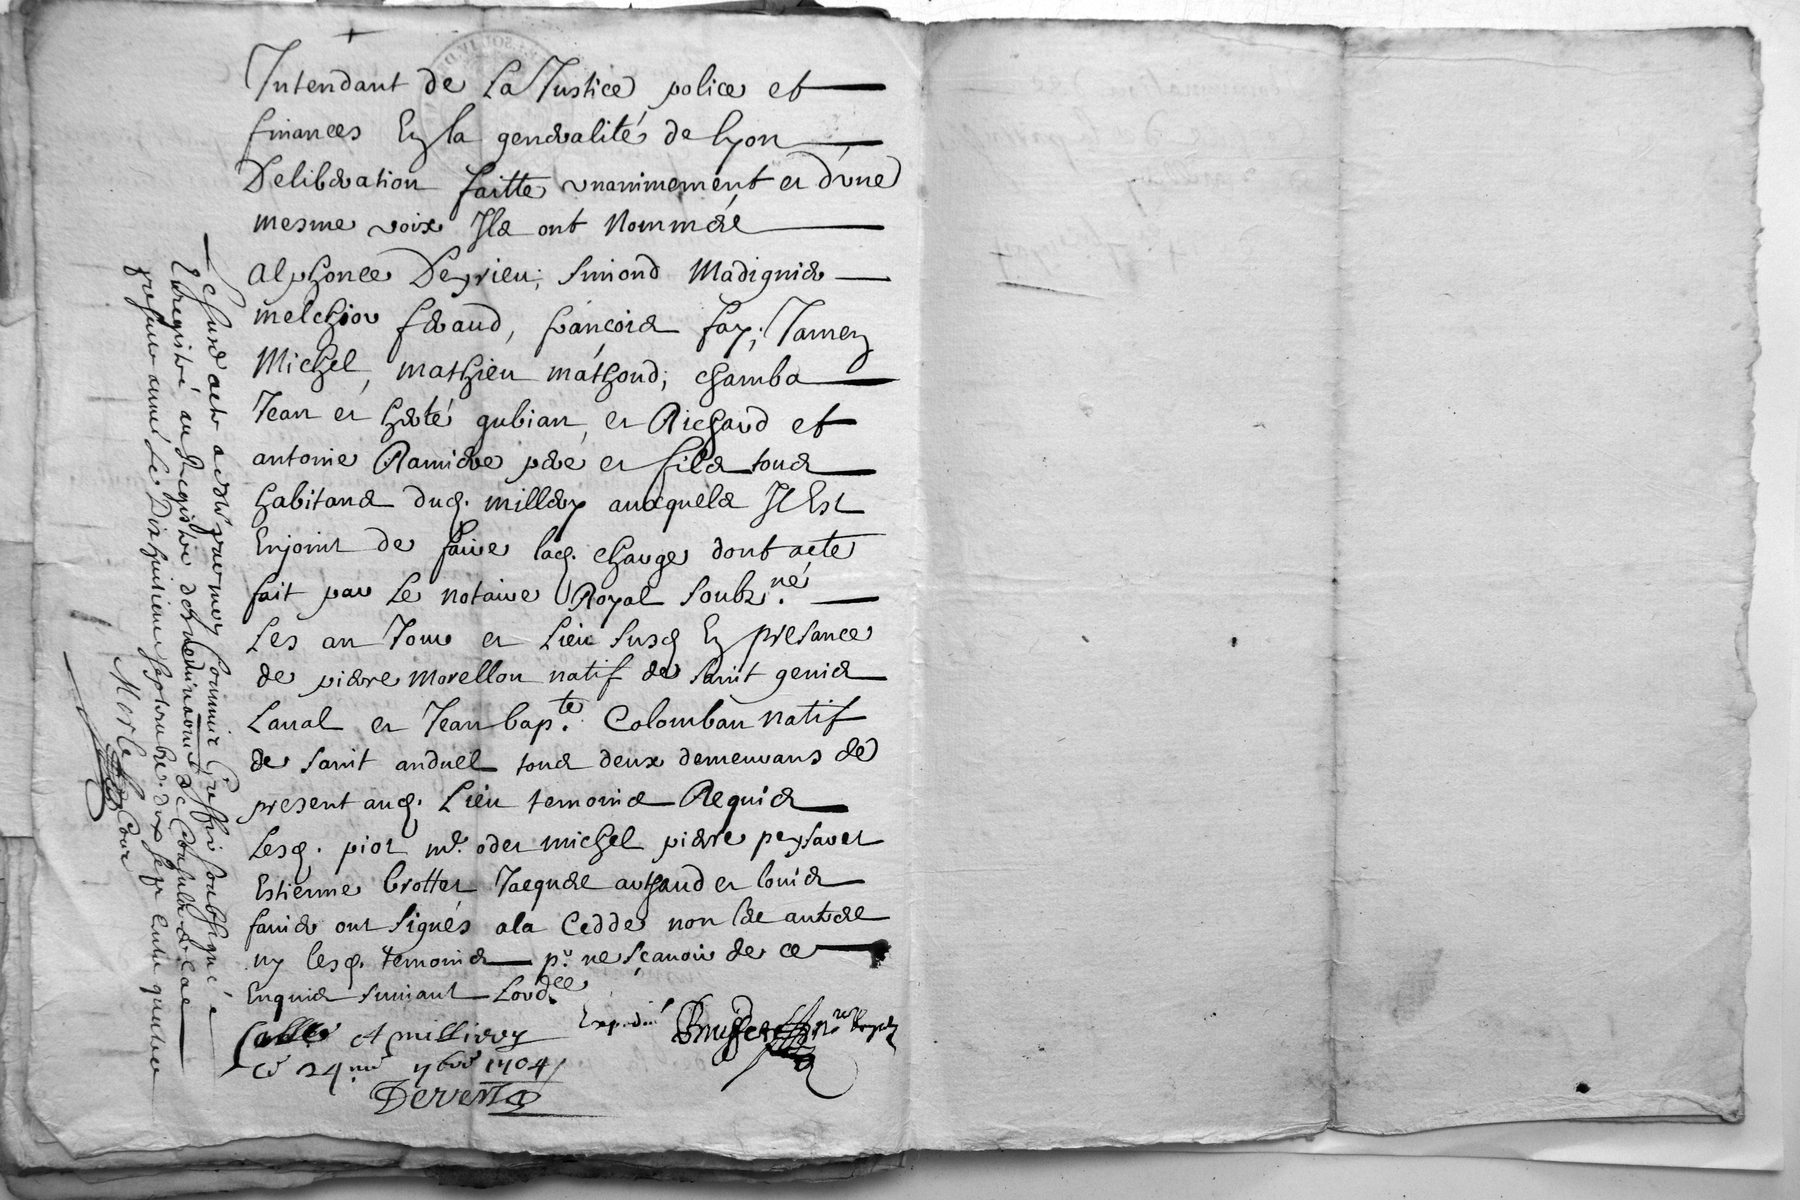 Intendant de La Justice police et
finances En la generalité de lyon
Deliberation faitte unanimement et d'une
mesme voix Ils ont Nommés
alphonce Deyrieu; Simond Madignier
melchior feraud, francois fay; Jamen
Michel, mathieu mathoud; chamba
Jean et herté gubian, et Richard et
antoine Ramiere pere et fils tous
habitans dud. millery auxquels Il Est
Enjoint de faire lad. charge dont acte
fait par Le notaire Royal soubz.né
Les an Jour et Lieu susd En presance
de pierre Morellon natif de saint genis
Laual et Jean bap.te Colomban natif
de saint anduel tous deux demeurans de
present aud. Lieu temoins Requis
Lesd. piot m. odet michel pierre peysaret
Estienne brottet Jacques arthaud et louis
faure ont signés a la Cedde non les autres
ny lesd. temoins pr. ne sçauoir de ce
Enquis suiuant Lord.ce
Expedié
Collé A millery
ce 24me 7bre 1704
Deresta
Le susd acte a esté par moy Commis Greffier soubsigné
Enregistré au Registre des de Consulz
presente année Le Dixhuitieme septembre dix sept cents quatre